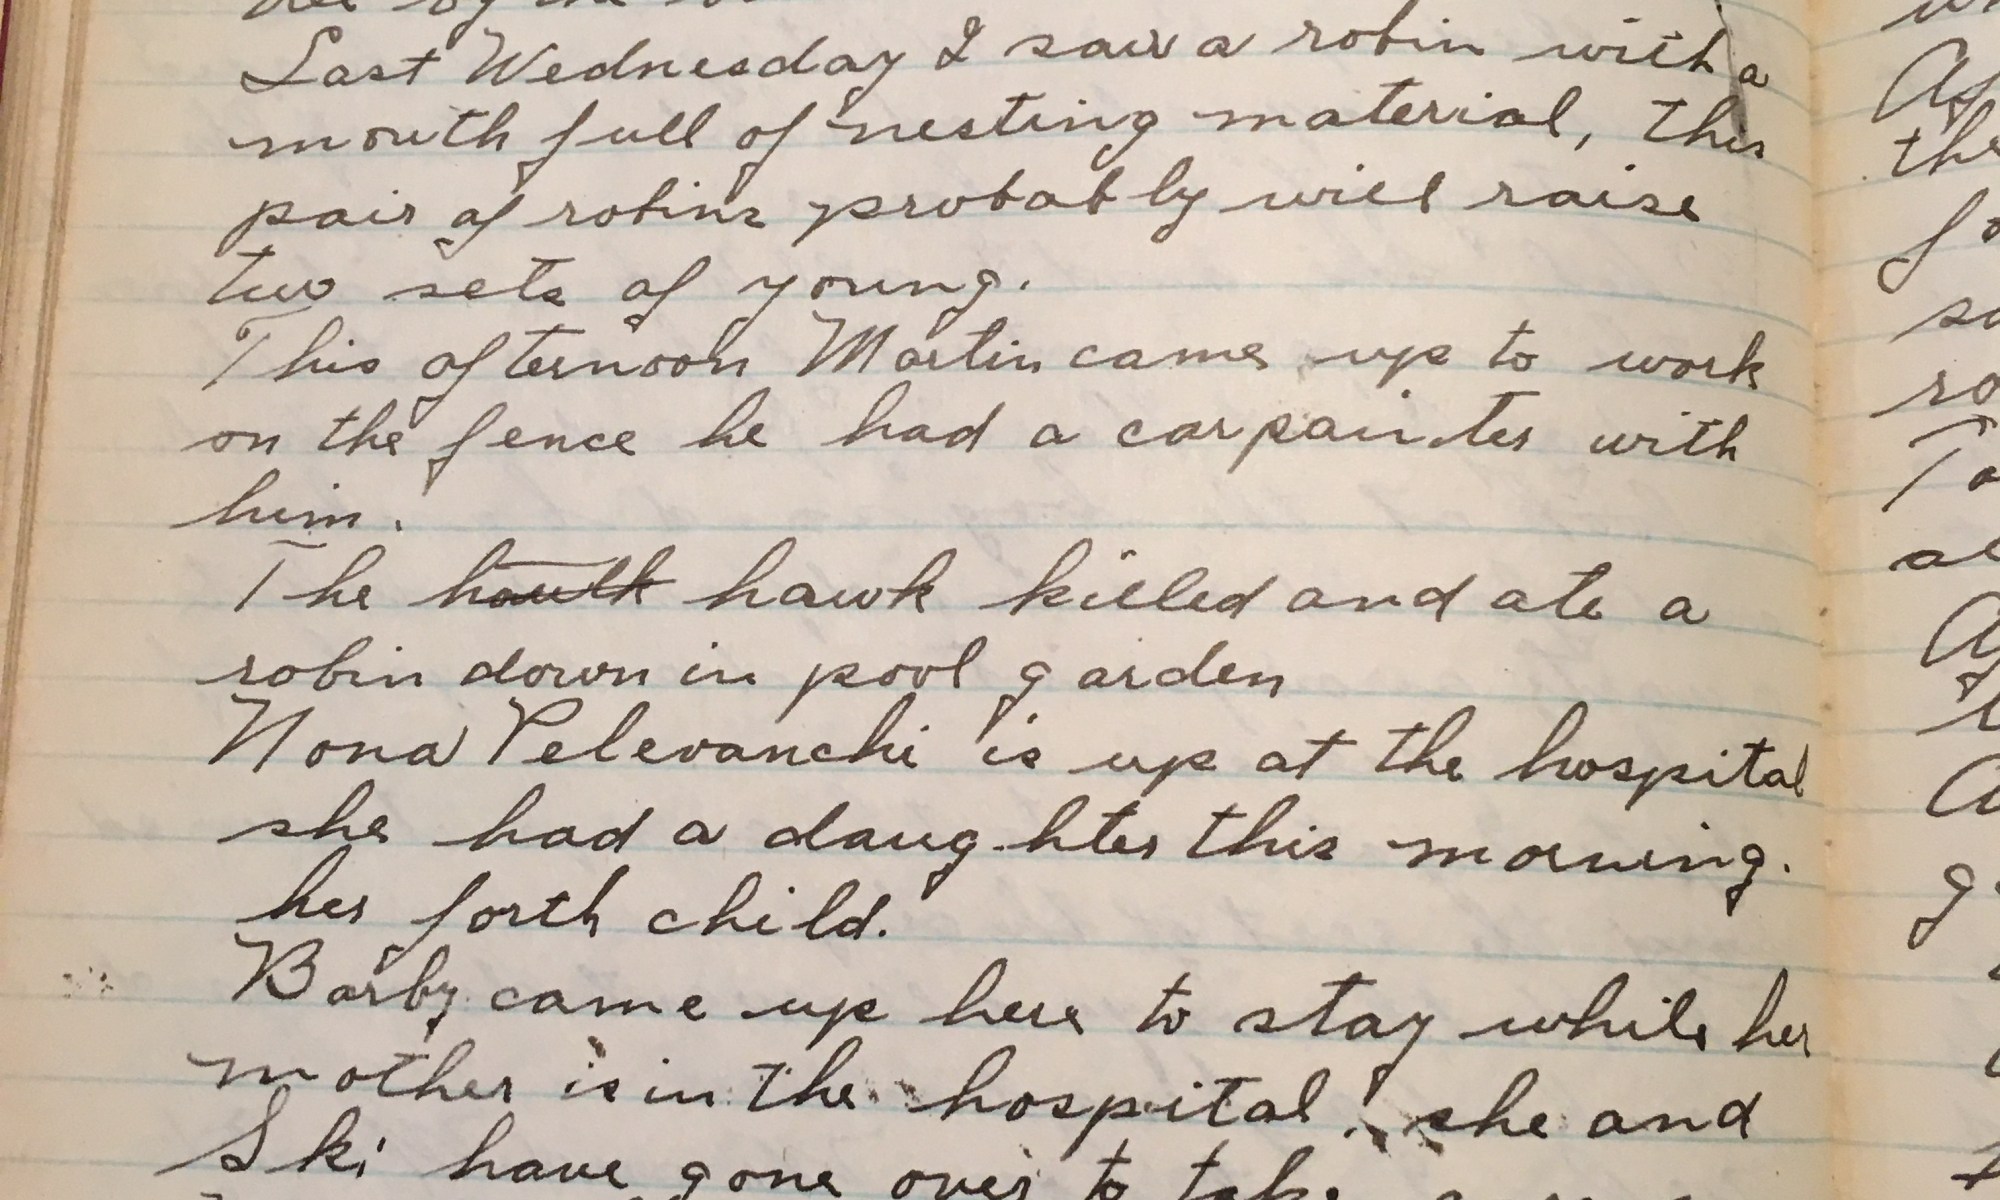 Last Wednesday I saw a robin with a
mouth full of nesting material, this
pair of robins probably will raise
two sets of young.
This afternoon Martin came up to work
on the fence he had a carpainter with
him.
The hawk killed and ate a
robin down in pool garden
Nona Pelevanchi is up at the hospital
she had a daughter this morning.
her forth child.
Barby came up here to stay while her
mother is in the hospital. she and
Ski have gone over to take